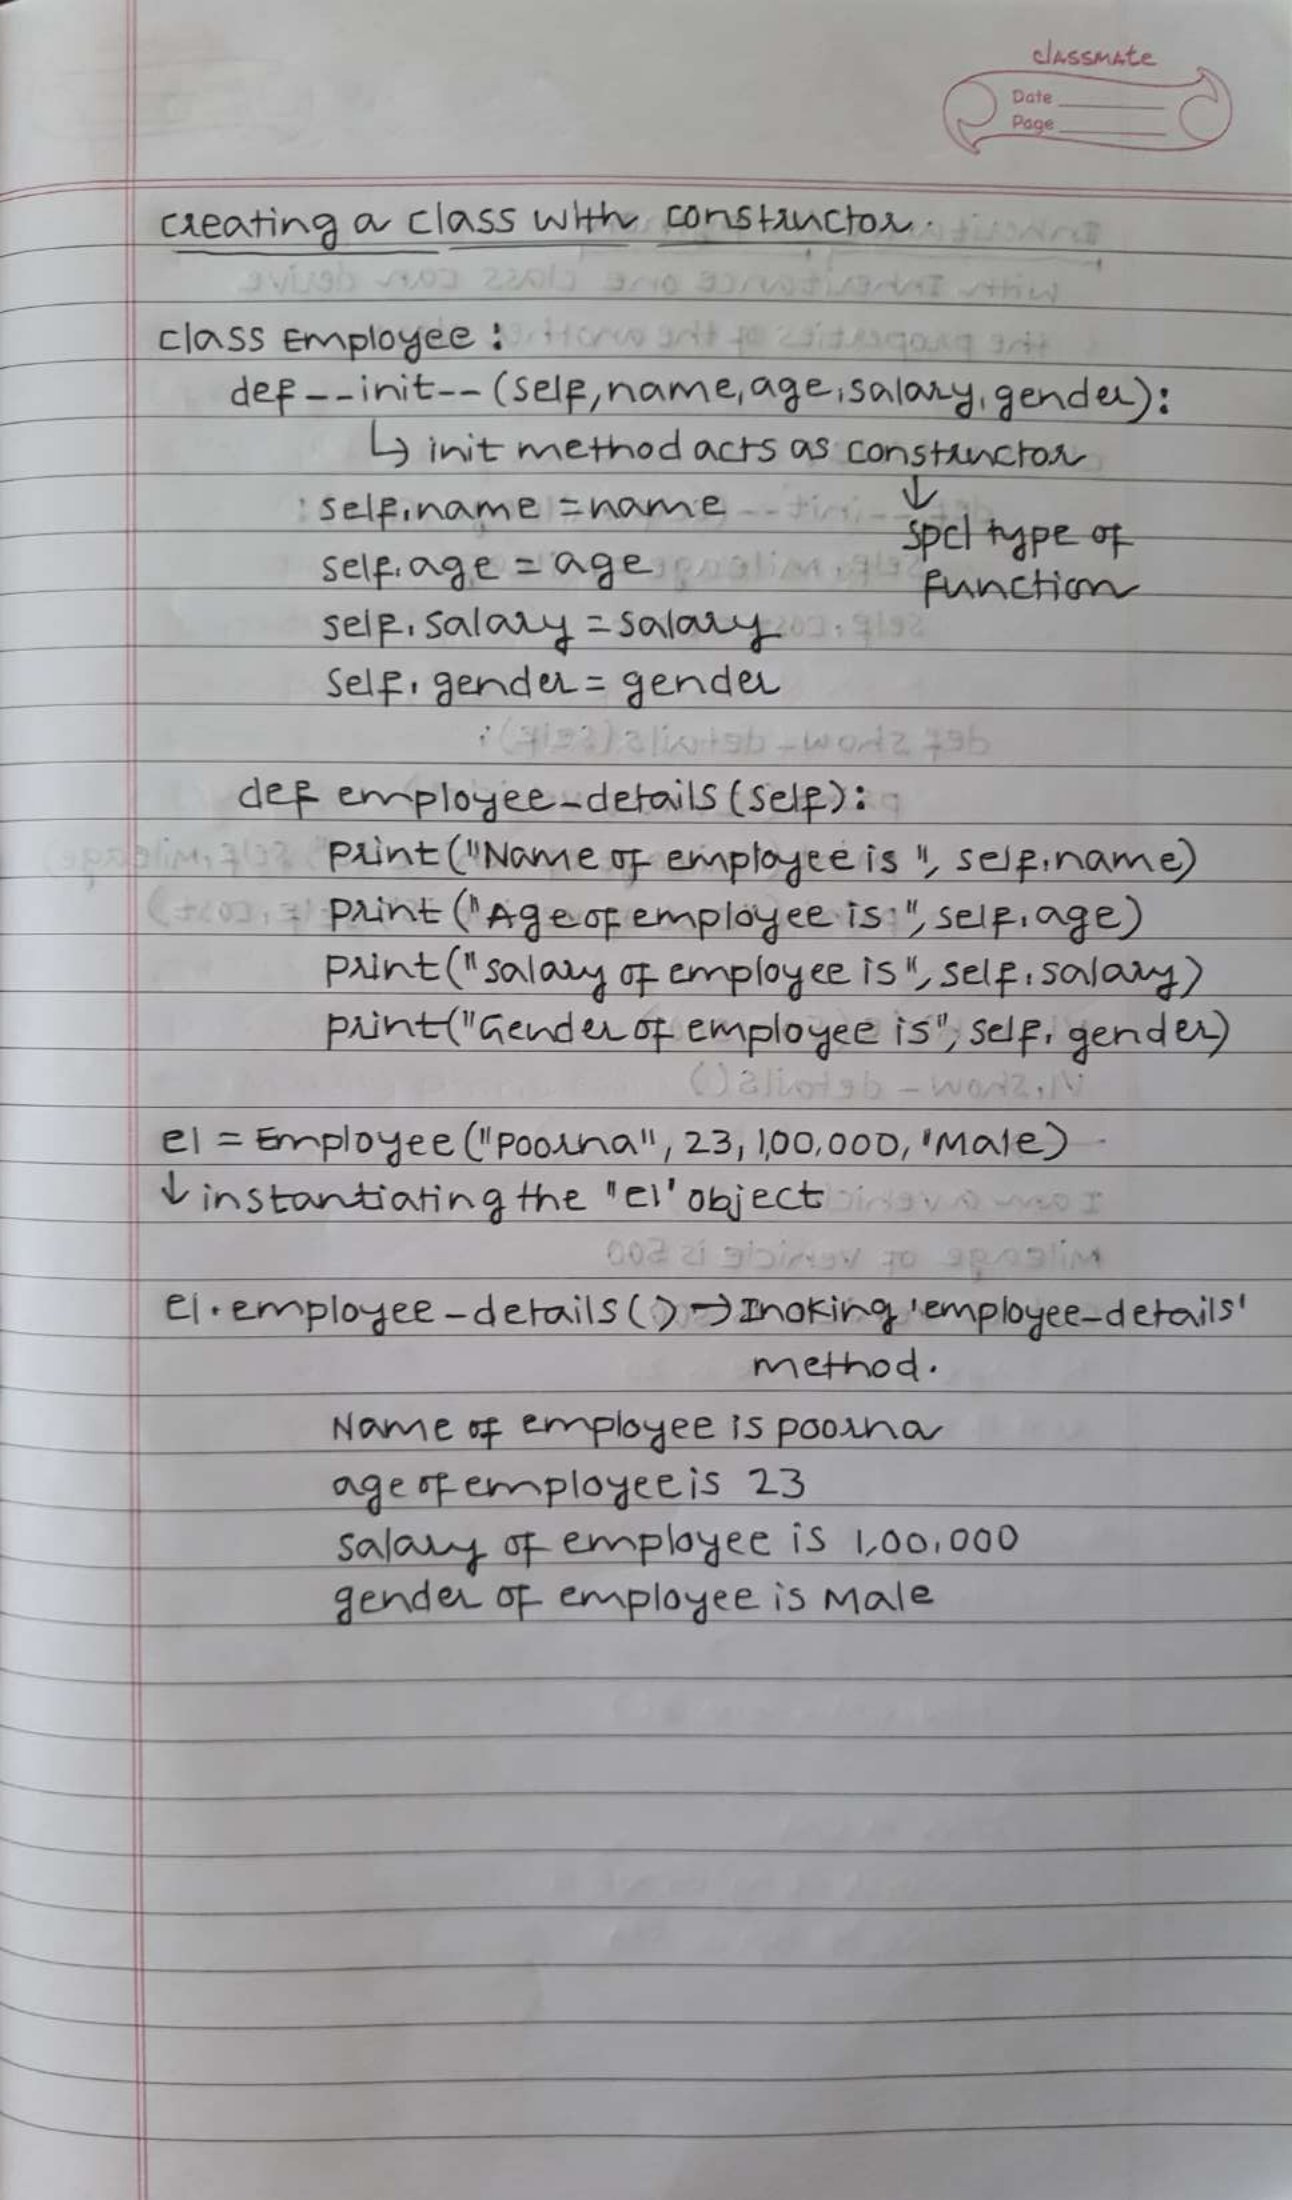 classmate
Date
Page
creating a class with constructor.
class Employee:
def --init-- (self, name, age, salary, gender):
↳ init method acts as constructor
↓
spcl type of
function
self.name = name
self.age = age
self.salary = salary
self.gender = gender
def employee-details(self):
print("Name of employee is ", self.name)
print("Age of employee is ", self.age)
print("salary of employee is", self.salary)
print("Gender of employee is", self.gender)
e1 = Employee("poorna", 23, 1,00,000, 'Male)
↓ instantiating the "e1' object
e1.employee-details() → Inoking 'employee-details'
method.
Name of employee is poorna
age of employee is 23
salary of employee is 1,00,000
gender of employee is Male